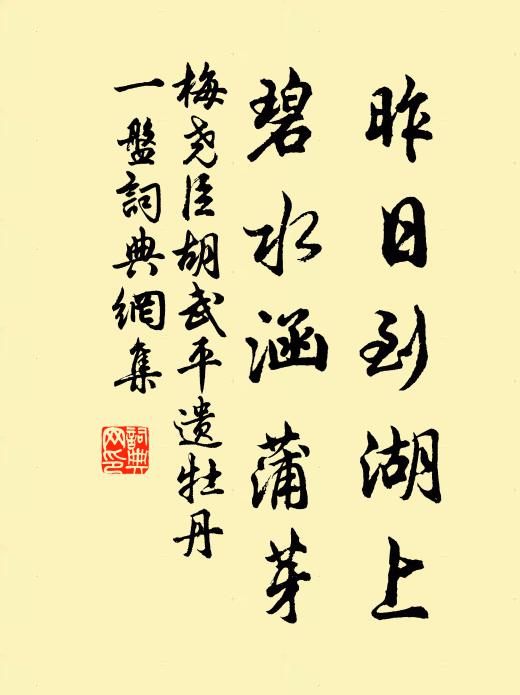 昨日到湖上
碧水涵蒲芽
梅尧臣胡武平遗牡丹
一盤詞典網集
詞典
网印